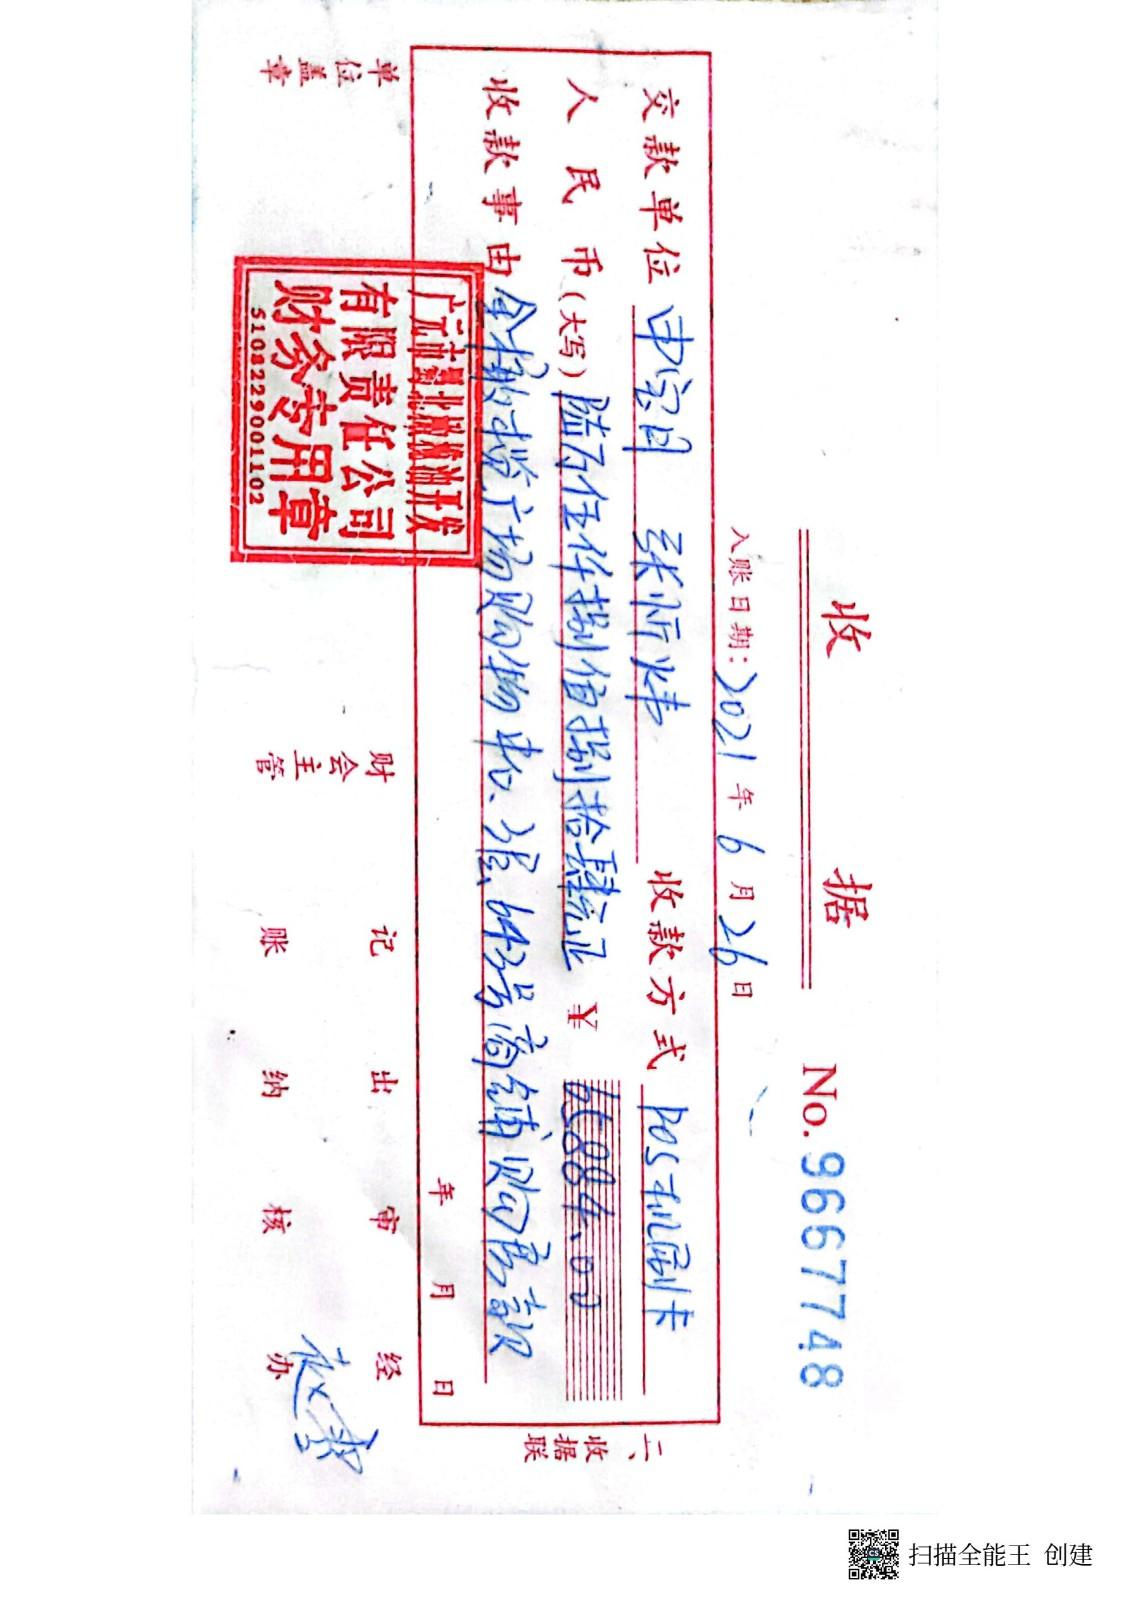 收 据
No. 9667748
入账日期: 2021 年 6 月 26 日
交款单位 申宗月 张忻炜 收款方式 POS机刷卡
人民币(大写) 陆万伍仟捌佰捌拾肆元正 ¥ 65884.00
收款事由 购物中心 643号商铺购房款
年 月 日
二、收据联
单位盖章 财会主管 记账 出纳 审核 经办
有限责任公司
财务专用章
5108229001102
扫描全能王 创建